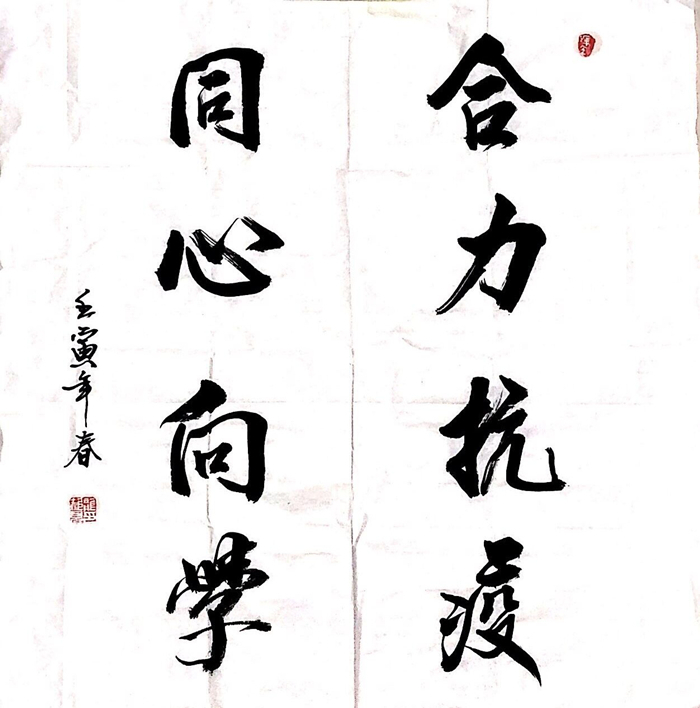 合力抗疫
同心向学
壬寅年春